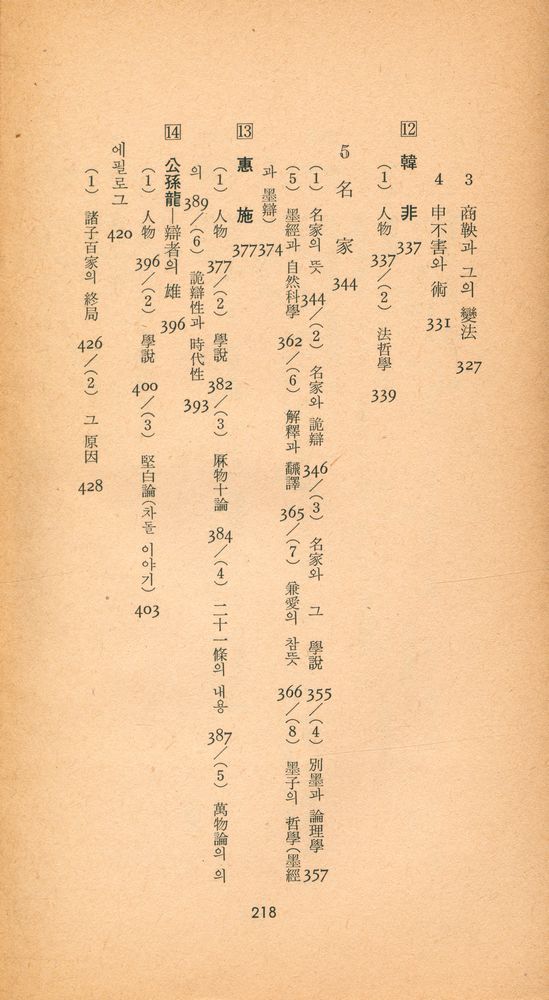 3 商鞅과 그의 變法 327
4 申不害와 術 331
12 韓非 337
(1) 人物 337/(2) 法哲學 339
5 名家 344
(1) 名家의 뜻 344/(2) 名家와 詭辯 346/(3) 名家와 그 學說 355/(4) 別墨과 論理學 357
(5) 墨經과 自然科學 362/(6) 解釋과 飜譯 365/(7) 兼愛의 참뜻 366/(8) 墨子의 哲學(墨經
과 墨辯) 374
13 惠施 377
(1) 人物 377/(2) 學說 382/(3) 厤物十論 384/(4) 二十一條의 내용 387/(5) 萬物論의 의
의 389/(6) 詭辯性과 時代性 393
14 公孫龍―辯者의 雄 396
(1) 人物 396/(2) 學說 400/(3) 堅白論(차돌 이야기) 403
에필로그 420
(1) 諸子百家의 終局 426/(2) 그 原因 428
218